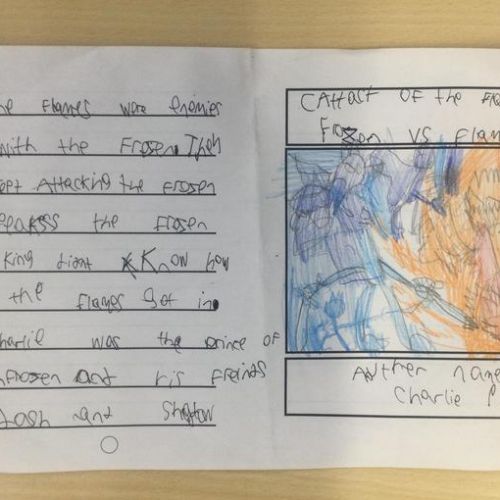 he Flames wore enemies
with the Frozen Then
Attacking the Frozen
the Frozen
King didnt Know how
the flames got in
harlie was the prince of
Frozen and his freinds
and
CAttast Of the
Frozen VS Flam
Auther name
Charlie P